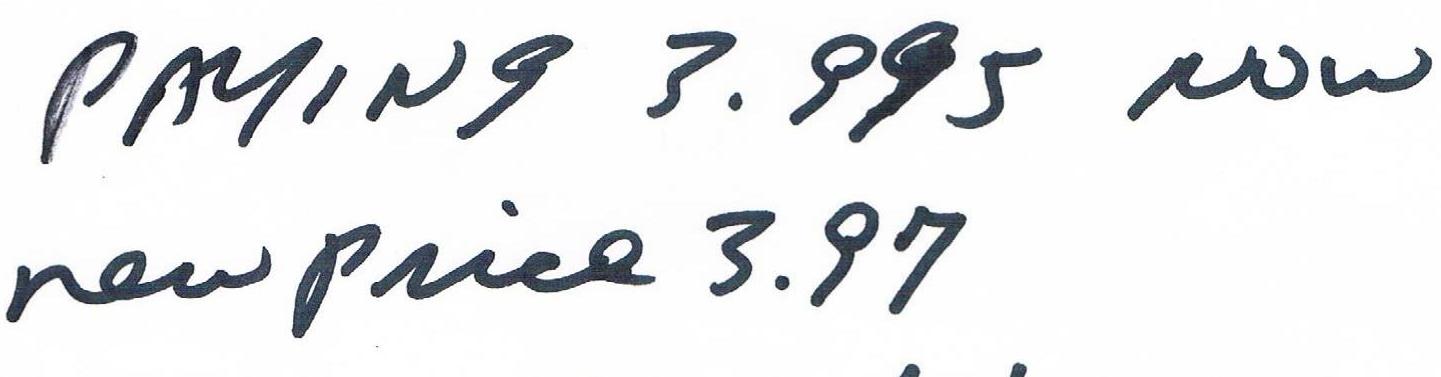 PAYING 3.995 NOW
new price 3.97